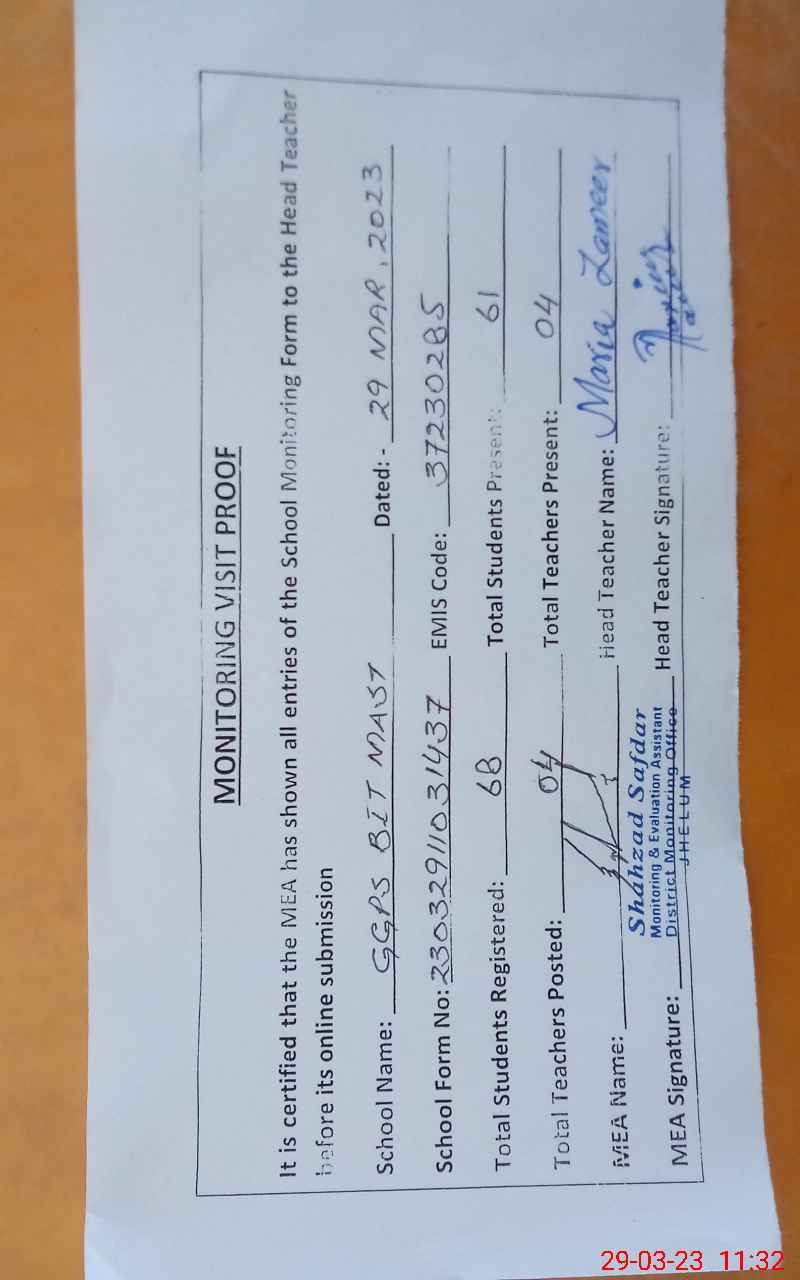 MONITORING VISIT PROOF
It is certified that the MEA has shown all entries of the School Monitoring Form to the Head Teacher
before its online submission
School Name: GGPS BIT MAST Dated: - 29 MAR, 2023
School Form No: 23032911031437 EMIS Code: 37230285
Total Students Registered: 68 Total Students Present: 61
Total Teachers Posted: 04 Total Teachers Present: 04
MEA Name: Head Teacher Name: Maria Zameer
Shahzad Safdar
Monitoring & Evaluation Assistant
District Monitoring Office
JHELUM
MEA Signature: Head Teacher Signature:
29-03-23 11:32